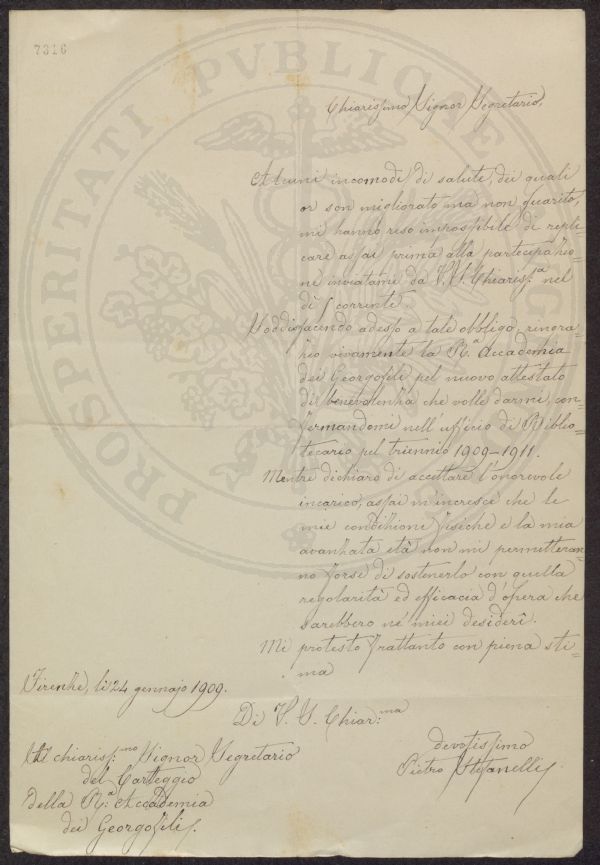 7316
PROSPERITATI PVBLICAE
Chiarissimo Signor Segretario,
Alcuni incomodi di salute, dei quali
or son migliorato ma non guarito,
mi hanno reso impossibile di repli=
care assai prima alla partecipazio=
ne inviatami da V. S. Chiariss.ª nel
dì 5 corrente.
Soddisfacendo adesso a tale obbligo, ringra=
zio vivamente la R.ª Accademia
dei Georgofili pel nuovo attestato
di benevolenza che volle darmi, con=
fermandomi nell'ufficio di Biblio=
tecario pel triennio 1909-1911.
Mentre dichiaro di accettare l'onorevole
incarico, assai m'incresce che le
mie condizioni fisiche e la mia
avanzata età non mi permetteran=
no forse di sostenerlo con quella
regolarità ed efficacia d'opera che
sarebbero ne' miei desiderî.
Mi protesto frattanto con piena sti=
ma
Firenze, li 24 gennajo 1909.
Di V. S. Chiar:ma
Al chiariss:mo Signor Segretario
del Carteggio
della R:ª Accademia
dei Georgofili.
devotissimo
Pietro Stefanelli